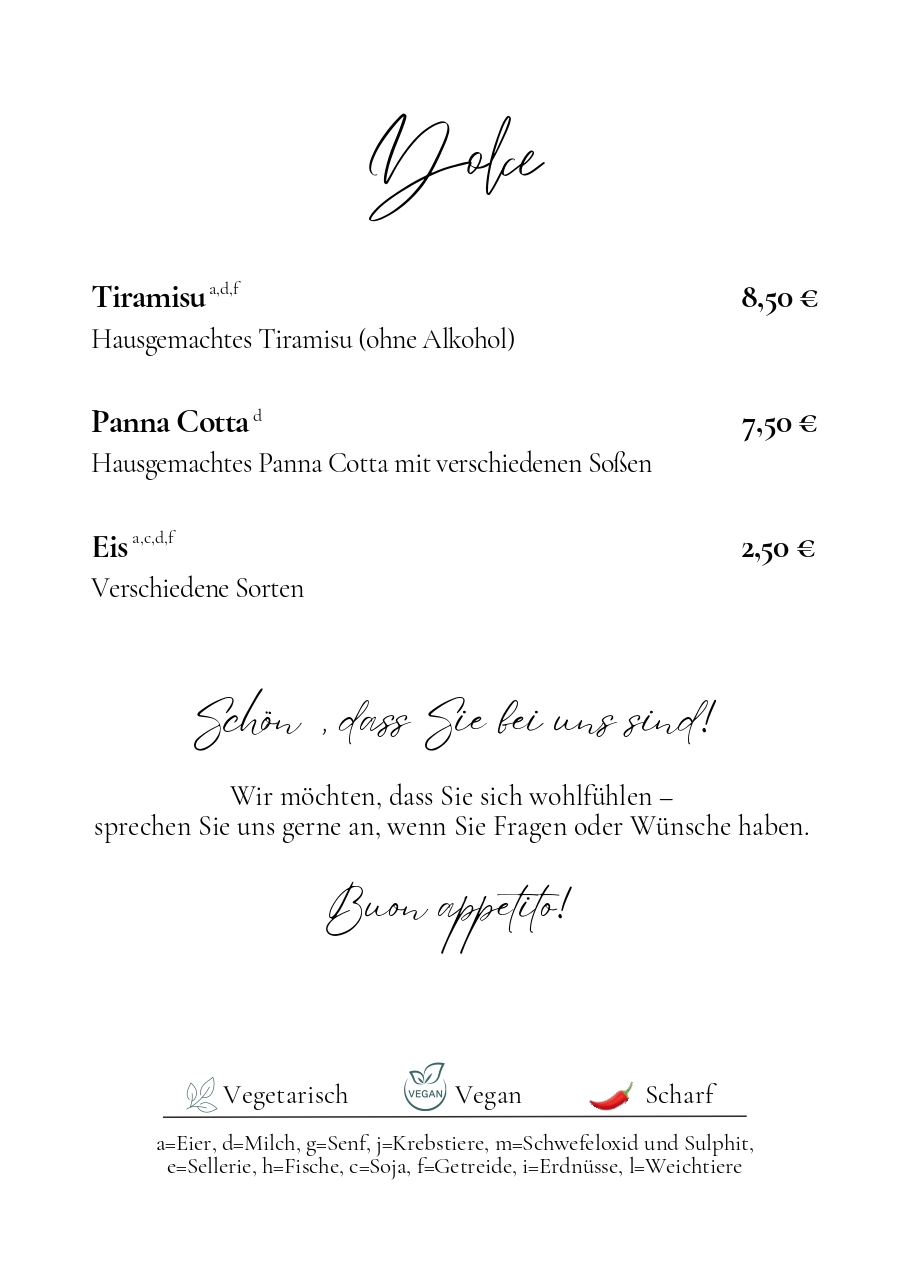 Dolce
Tiramisu a,d,f 8,50 €
Hausgemachtes Tiramisu (ohne Alkohol)
Panna Cotta d 7,50 €
Hausgemachtes Panna Cotta mit verschiedenen Soßen
Eis a,c,d,f 2,50 €
Verschiedene Sorten
Schön , dass Sie bei uns sind!
Wir möchten, dass Sie sich wohlfühlen –
sprechen Sie uns gerne an, wenn Sie Fragen oder Wünsche haben.
Buon appetito!
Vegetarisch VEGAN Vegan Scharf
a=Eier, d=Milch, g=Senf, j=Krebstiere, m=Schwefeloxid und Sulphit,
e=Sellerie, h=Fische, c=Soja, f=Getreide, i=Erdnüsse, l=Weichtiere